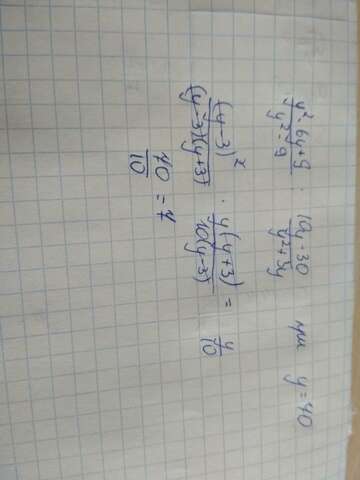 y² - 6y + 9 / y² - 9 : 10y - 30 / y² + 3y при y = 70
(y-3)² / (y-3)(y+3) · y(y+3) / 10(y-3) = y / 10
70 / 10 = 7